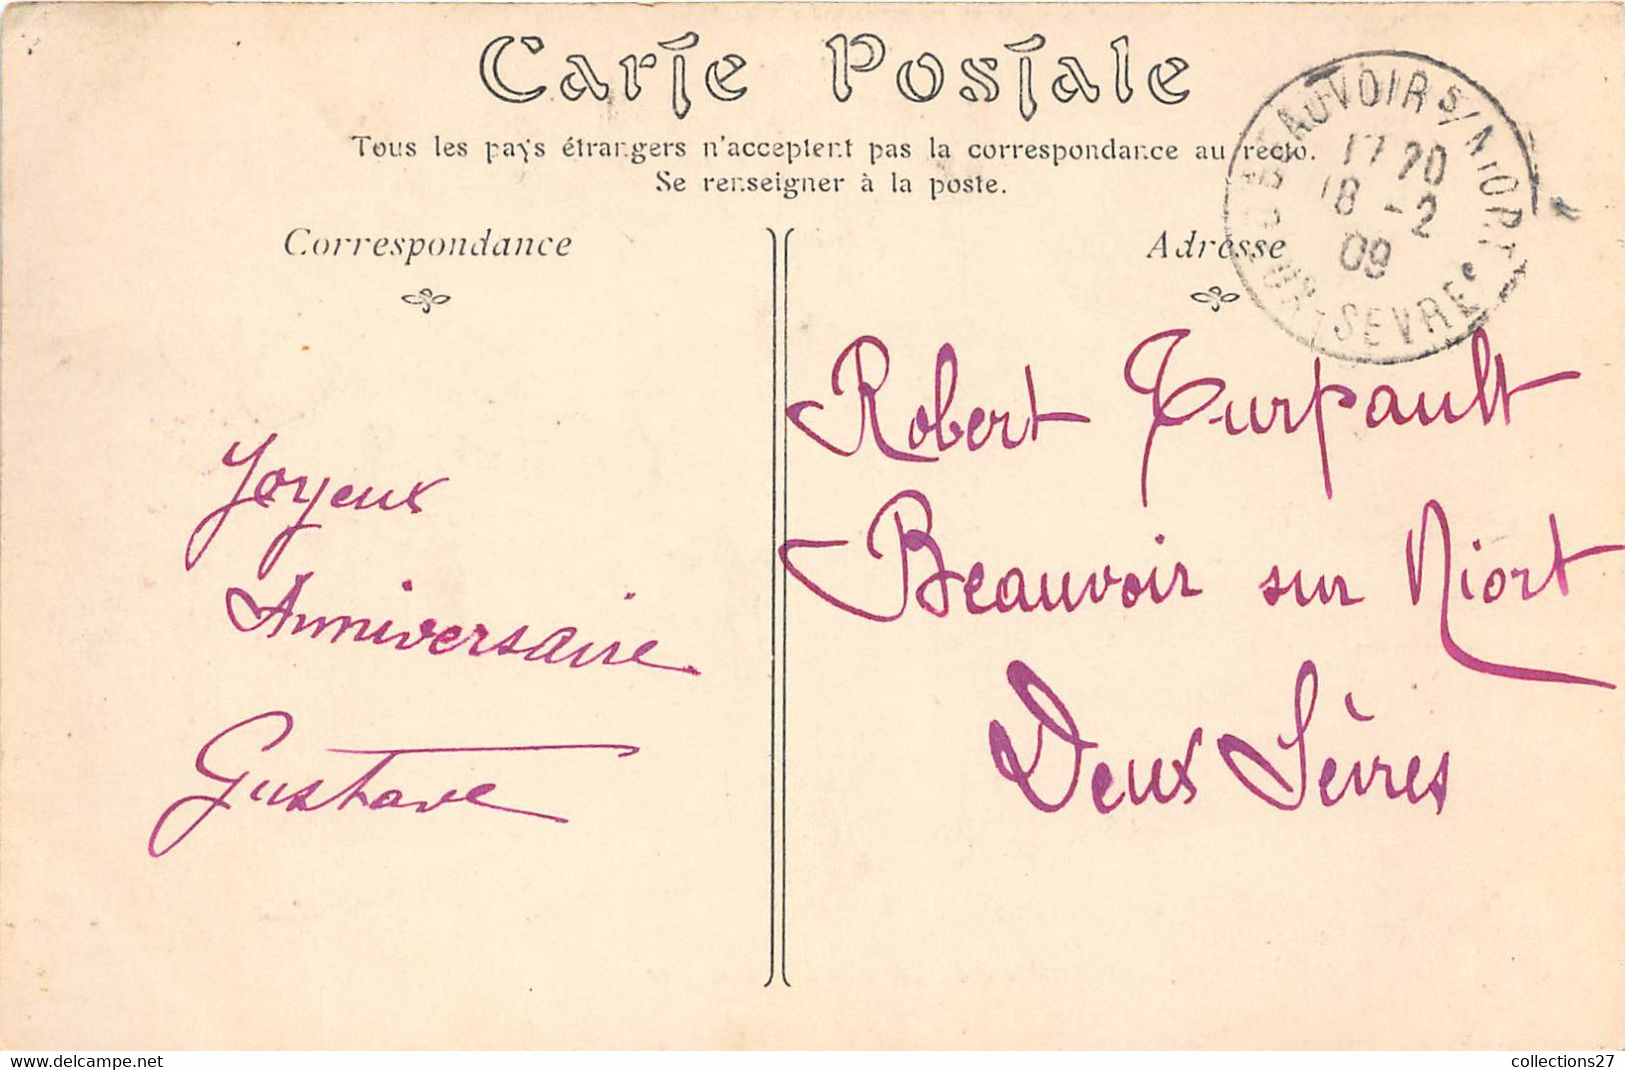 Carte Postale
Tous les pays étrangers n'acceptent pas la correspondance au recto.
Se renseigner à la poste.
Correspondance
Adresse
BEAUVOIR S/ NIORT
17 20
18 -2
09
SEVRE
Joyeux
Anniversaire
Gustave
Robert Turpault
Beauvoir sur Niort
Deux Sèvres
https://www.delcampe.net
collections27